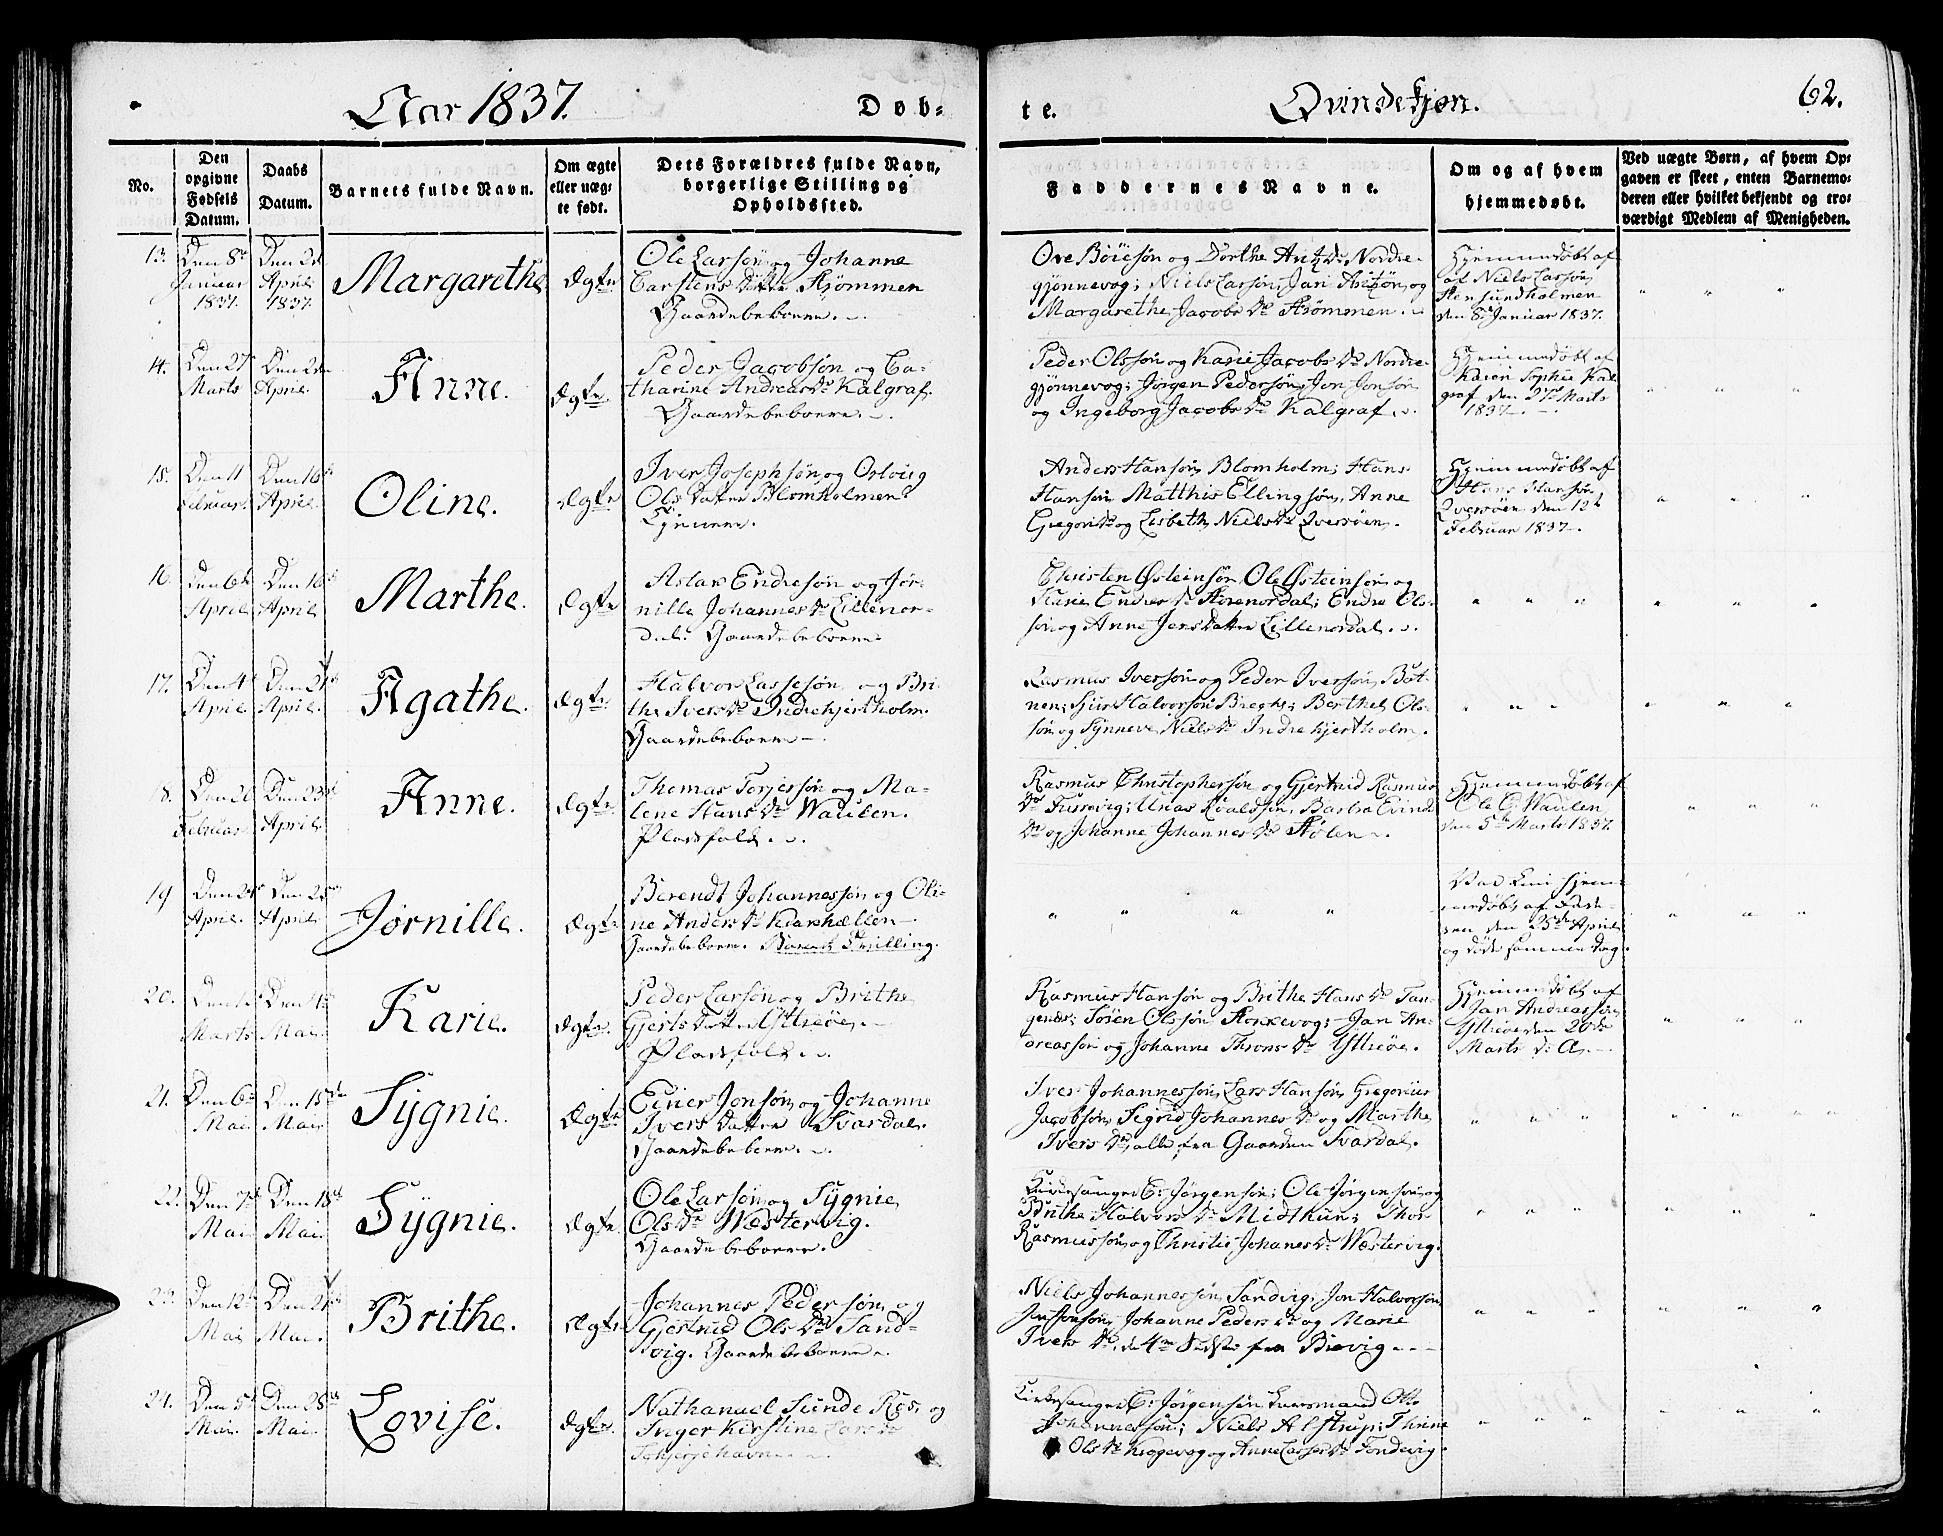 Aar 1837.
Døb-
te.
Qvindekjøn.
62.
No.
Den
opgivne
Fødsels
Datum.
Daabs
Datum.
Barnets fulde Navn.
Om ægte
eller uæg-
te født.
Dets Forældres fulde Navn,
borgerlige Stilling og
Opholdssted.
Faddernes Navne.
Om og af hvem
hjemmedøbt.
Ved uægte Børn, af hvem Op-
gaven er skeet, enten Barnemo-
deren eller hvilket bekjendt og tro-
værdigt Medlem af Menigheden.
13.
Den 8de
Januar
1837.
Den 2den
April
1837.
Margarethe
Ægte
Ole Larsøn og Johanne
Carstens Datter
Gaardebeboere.
Ove Böiesøn og Dorthe
Niels Larsøn,
Margarethe Jacobs Dr
Hjemmedøbt af
af Niels Larsøn,
den 8de Januar 1837.
14.
Den 27
Marts
Den 2den
April.
Anne.
Ægte.
Peder Jacobsøn og Ca-
tharine Andreas Dr Kalgraf.
Gaardebeboere.
Peder Olssøn og Karie Jacobs Dr Nordre-
gjønnevog; Jørgen Pedersøn, Jon Jonsøn
og Ingeborg Jacobs Dr Kalgraf.
Hjemmedøbt af
Karen Sophie Kal
graf den 27de Marts
1837.
15.
Den 11
Februar.
Den 16de
April.
Oline.
Ægte
Iver Josephsøn og
Ols Datter Blomholmen
Anders Hansøn, Blomholm; Hans
Hansøn Matthis Ellingsøn, Anne
Gregori Dr og Lisbeth Niels Dr
Hjemmedøbt af
Hans Hansøn
den 12te
Februar 1837.
16.
Den 6te
April
Den 16de
April
Marthe.
Ægte
Aslak Endresøn og Jør-
nille Johannes Dr Lillenor-
dal. Gaardebeboere
Christen Østeinsøn, Ole Østeinsøn og
Karie Endres Dr Storenordal; Endre Ols-
søn og Anne Jens Datter Lillenordal.
17.
Den 4de
April
Den
April.
Agathe.
Ægte.
Halvor Lassesøn og Bri-
the Ivers Dr Indrehjertholm.
Gaardebeboere.
Rasmus Iversøn og Peder Iversøn, Bot-
nen; Sjur Halvorsøn Berthel Ols-
søn og Synneve Niels Dr Indrehjertholm.
18.
Den
Februar
Den 23de
April.
Anne.
Ægte.
Thomas Terjesøn og Ma-
lene Hans Dr Waulen.
Pladsfolk.
Rasmus Christophersøn og Gjertrud Rasmus
Dr
Dr og Johanne Johannes Dr
Hjemmedøbt af
Ole Waulen
den 5te Marts 1837.
19
Den
April.
Den
April
Jørnille.
Ægte
Berendt Johannessøn og Oli-
ne Anders Dr
Gaardebeboere.
Var kun hjem-
medøbt af
den 23de April
og døde samme Dag.
20.
Den
Marts
Den
Mai.
Karie.
Ægte.
Peder Larsøn og Brithe
Gjerts Datter Yttreöe.
Pladsfolk.
Rasmus Hansøn og Brithe Hans Dr Tan-
genes; Søren Olssøn Stokkevog; Jan An-
dreassøn og Johanne Throns Dr Yttreöe.
Hjemmedøbt af
Jan Andreassøn
Yttreöe den 20de
Marts d: A.
21.
Den 6te
Mai
Den 15de
Mai.
Sygnie.
Ægte
Einer Jonsøn og Johanne
Ivers Datter Svardal.
Gaardebeboere.
Iver Johannessøn, Lars Hansøn, Gregorius
Jacobsøn, Sigrid Johannes Dr og Marthe
Ivers Dr, alle fra Gaarden Svardal.
22.
Den 7de
Mai
Den 18de
Mai.
Sygnie.
Ægte.
Ole Larsøn og Sygnie
Ols Dr Westervig.
Gaardebeboere.
Kirkesanger C: Jørgensøn; Ole Jørgensøn og
Brithe Halvors Dr Midthun; Thor
Rasmussøn og Christie Johanes Dr Westervig.
23.
Den 12te
Mai
Den
Mai.
Brithe.
Ægte
Johannes Pedersøn og
Gjertrud Ols Dr Sand-
vig. Gaardebeboere.
Niels Johannessøn, Sandvig; Jon Halvorsøn
Johanne Peders Dr og Marie
Ivers Dr, de 4re Sidste fra Birvig.
24.
Den 5te
Mai.
Den 28de
Mai.
Lovise.
Ægte.
Nathanael Sunde og
Inger Kirstine Lars Dr
Kirkesanger C: Jørgensøn, Otto
Johannessøn; Niels Alstrup; Thrine
Ols Dr Krogevog og Anne Lasses Dr Tondevig.